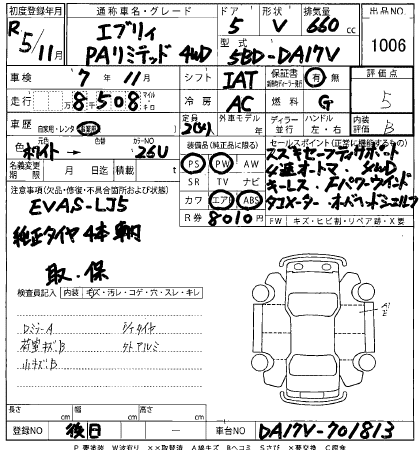 初度登録年月 通称車名・グレード ドア 形状 排気量 出品NO
R 5/11月 エブリィ PAリミテッド 4WD 5 V 660 cc
型式 5BD-DA17V 1006
車検 7年 11月 シフト IAT 保証書 有 無 評価点
走行 8 508 マイル キロ 冷房 AC 燃料 G 5
車歴 自家用・レンタ 定員 2(4)人 外車モデル 年 ディーラー 並行 ハンドル 左・右 内装 B
色 元色 ホワイト → 色替 カラーNO 26U
装備品(純正品に限る) セールスポイント(正常に機能するもの)
名義変更期限 月 日 積載 t
PS PW AW
SR TV ナビ
カワ エアB ABS
R券 8010円
スズキセーフティサポート
4速オートマ 4WD
キーレス Fパワーウインド
タコメーター オーバーヘッドシェルフ
FW キズ・ヒビ割・リペア跡・X要
注意事項(欠品・修復・不具合箇所および改造等)
EVAS-LJ5
純正タイヤ4本車内
取・保
検査員記入 内装 キズ・汚レ・コゲ・穴・スレ・キレ
DミラーA
荷室キズB
小キズB
A1
E
長さ cm 幅 cm 高さ cm
登録NO 後日 — 車台NO DA17V-701813
P 要塗装 W波有り ××取替済 A線キズ Bヘコミ Sさび ×要交換 C腐食